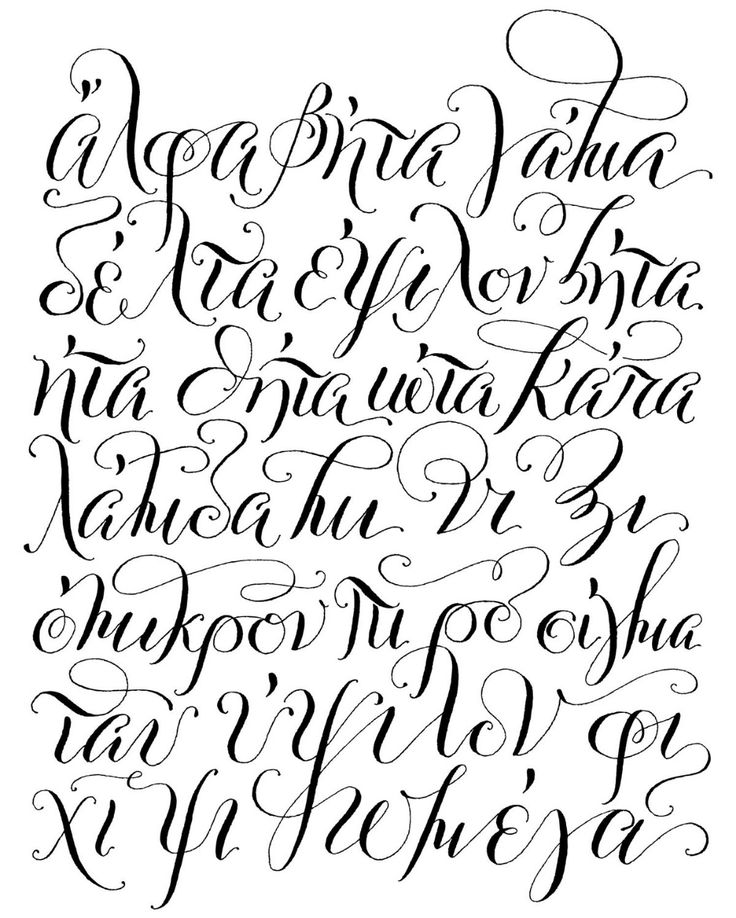 ἄλφα βήτα γάμα
δέλτα έψιλον ζήτα
ήτα θήτα ιώτα κάπα
λάμδα μι νι ξι
όμικρον πι ρο σίγμα
ταυ ύψιλον φι
χι ψι ωμέγα